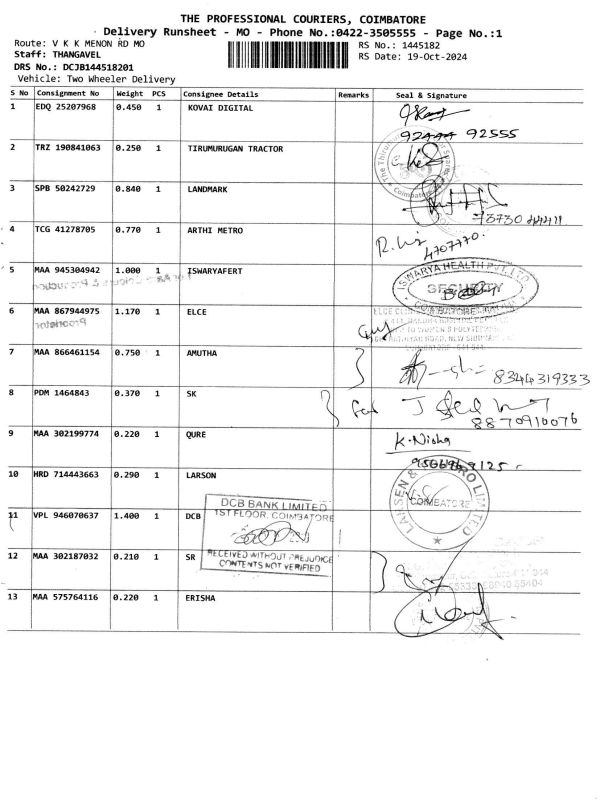 THE PROFESSIONAL COURIERS, COIMBATORE
Delivery Runsheet - MO - Phone No.:0422-3505555 - Page No.:1
Route: V K K MENON RD MO
RS No.: 1445182
Staff: THANGAVEL
RS Date: 19-Oct-2024
DRS No.: DCJB144518201
Vehicle: Two Wheeler Delivery
S No Consignment No Weight PCS Consignee Details Remarks Seal & Signature
1 EDQ 25207968 0.450 1 KOVAI DIGITAL
92555
2 TRZ 190841063 0.250 1 TIRUMURUGAN TRACTOR
3 SPB 50242729 0.840 1 LANDMARK
4 TCG 41278705 0.770 1 ARTHI METRO
4707770.
5 MAA 945304942 1.000 1 ISWARYAFERT
ISWARYA HEALTH PVT. LTD.
SECURITY
6 MAA 867944975 1.170 1 ELCE
Proprietor
7 MAA 866461154 0.750 1 AMUTHA
8344319333
8 PDM 1464843 0.370 1 SK
8870910076
9 MAA 302199774 0.220 1 QURE
K. Nisha
10 HRD 714443663 0.290 1 LARSON
COIMBATORE
11 VPL 946070637 1.400 1 DCB
DCB BANK LIMITED
1ST FLOOR, COIMBATORE
RECEIVED WITHOUT PREJUDICE
CONTENTS NOT VERIFIED
12 MAA 302187032 0.210 1 SR
13 MAA 575764116 0.220 1 ERISHA